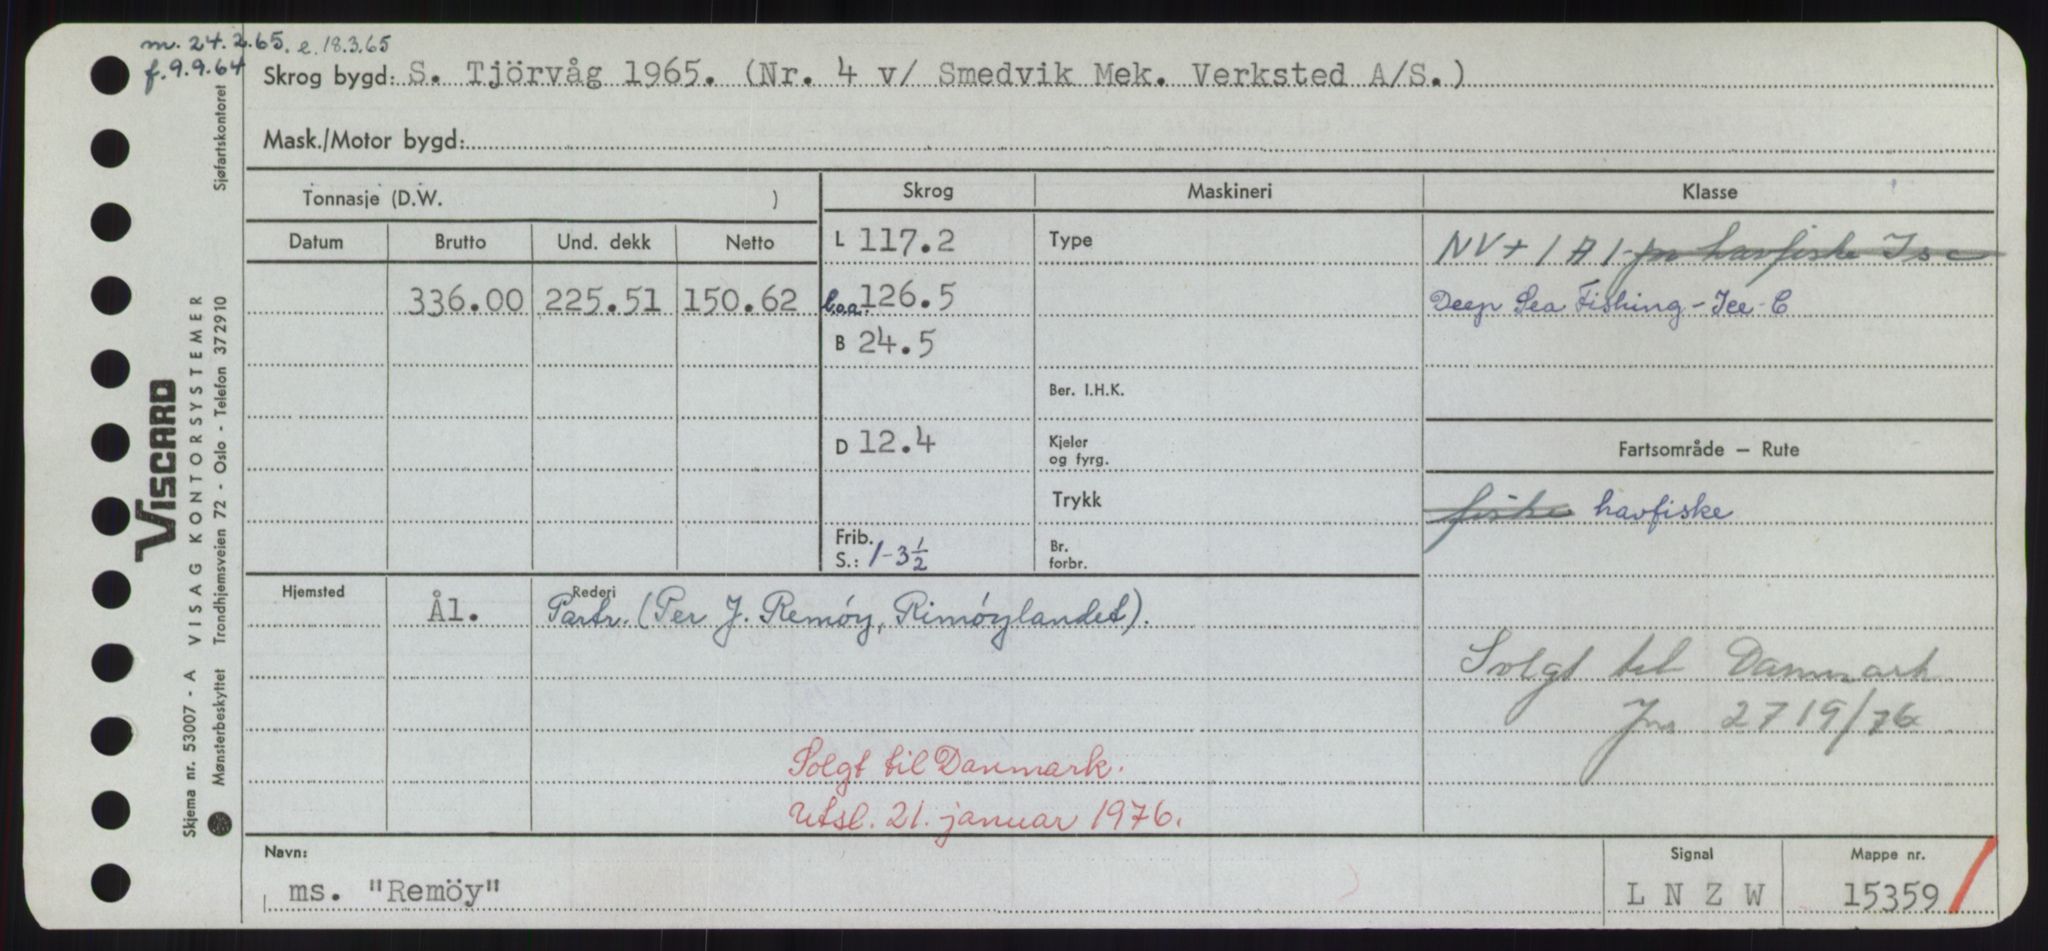 m. 24.2.65. e. 18.3.65
f. 9.9.64
Skrog bygd: S. Tjörvåg 1965. (Nr. 4 v/ Smedvik Mek. Verksted A/S.)
Mask./Motor bygd:
Tonnasje (D.W. )
Skrog
Maskineri
Klasse
Datum
Brutto
Und. dekk
Netto
336.00
225.51
150.62
L 117.2
b.o.a. 126.5
B 24.5
D 12.4
Frib.
S.: 1-3½
Type
Ber. I.H.K.
Kjeler
og fyrg.
Trykk
Br.
forbr.
NV+1A1-for havfiske Is c
Deep Sea Fishing - Ice-C
Fartsområde — Rute
fiske havfiske
Solgt til Danmark
Jnr 2719/76
Hjemsted
Ål.
Rederi
Partr. (Per J. Remöy, Rimöylandet).
Solgt til Danmark.
Utsl. 21. januar 1976.
Navn:
ms. "Remöy"
Signal
L N Z W
Mappe nr.
15359
VISCARD
Skjema nr. 53007 - A VISAG KONTORSYSTEMER
Mønsterbeskyttet Trondhjemsveien 72 - Oslo - Telefon 372910 Sjøfartskontoret